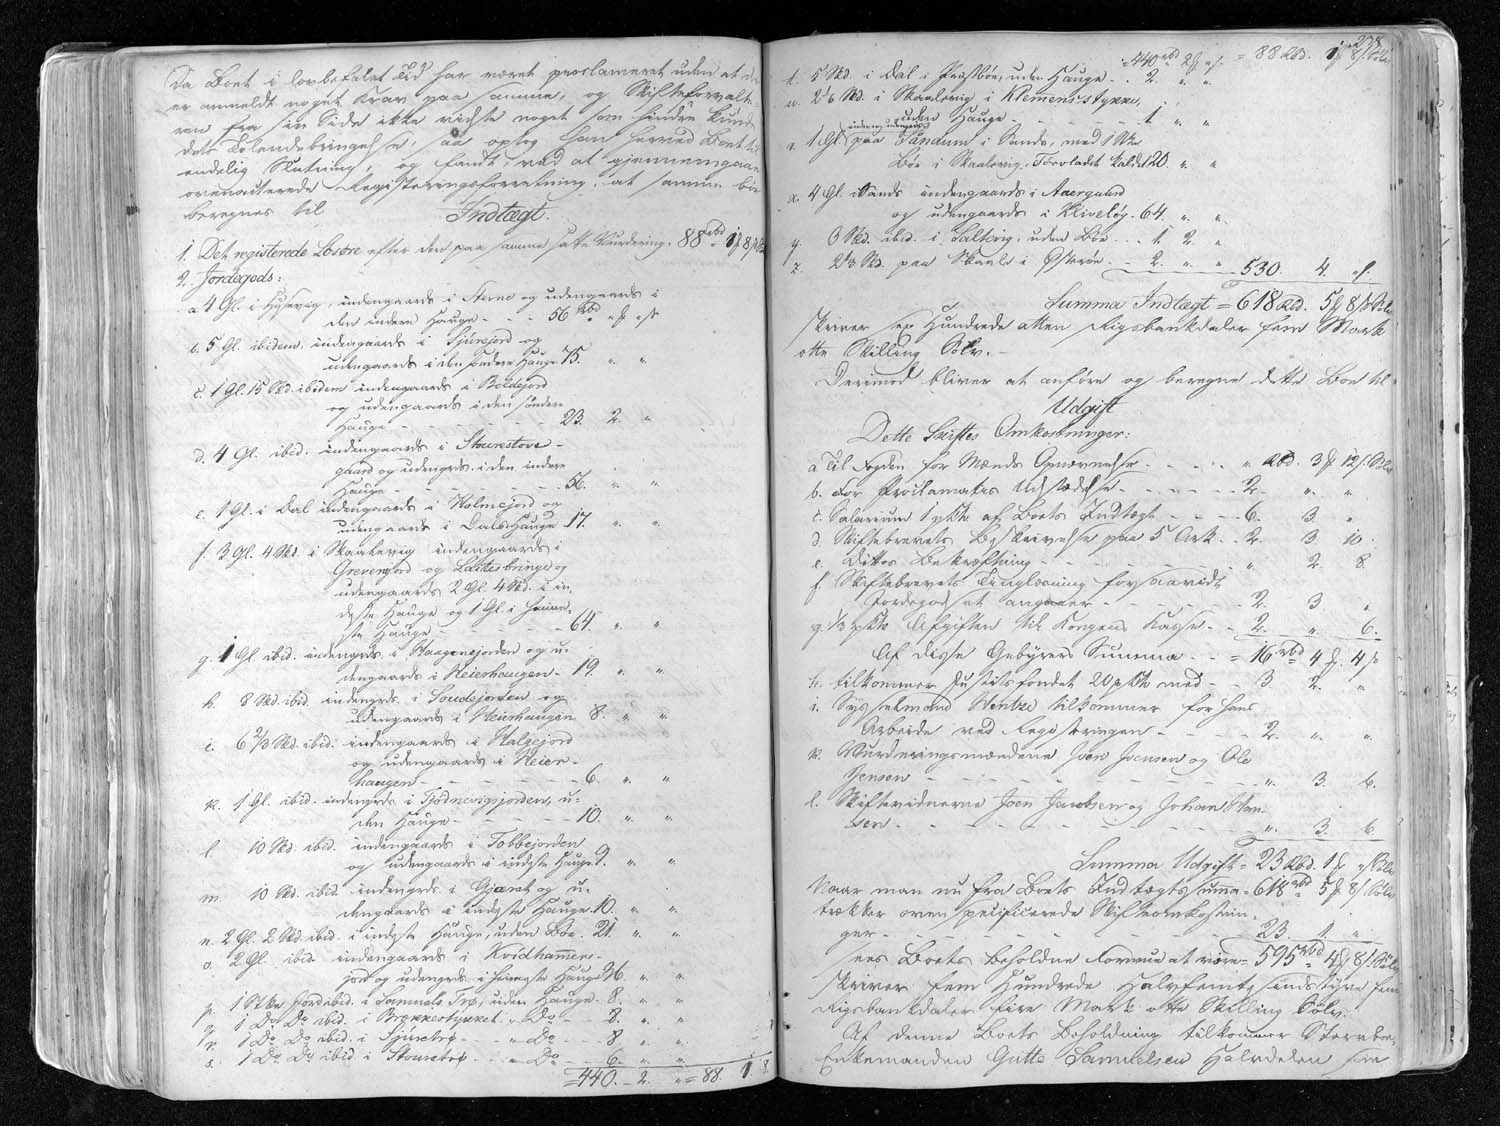 Da Boet i lovbefalet Tid har været proclameret uden at der
er anmeldt noget Krav paa samme, og Skifteforvalte-
ren fra sin Side ikke vidste noget som hindre kunde
dets Tilendebringelse, saa optog han herved Boet til
endelig Slutning, og fandt ved at gjennemgaae
ovenanførte Registeringsforretning, at samme bør
beregnes til
Indtægt.
1. Det registerede Løsøre efter den paa samme satte Vurdering. 88 rbd 1 ₻ 8 s
2. Jordegods:
a 4 Gl. i Husevig, indengaards i Sterno og udengaards i
den indere Hauge - - - 56 Rbd " ₻ " s
b. 5 Gl. ibidem, indengaards i Sjúrejord og
udengaards i den söndere Hauge 75. " "
c. 1 Gl. 15 Skd. ibidem indengaards i Boldejord
og udengaards i den söndere
Hauge - - - - - 23. 2. "
d. 4 Gl. ibid. indengaards i Stourestove-
gaard og udengrds. i den indere
Hauge - - - - - 56. " "
e. 1 Gl. i Dal indengaards i Holmejord og
udengaards i Dals Hauge 17. " "
f. 3 Gl. 4 Skd. i Skaalevig indengaards i
Grevenjord og Laitesbringe og
udengaards 2 Gl. 4 Skd. i in-
derste Hauge og 1 Gl. i
Hauge - - - - 64. " "
g. 1 Gl. ibid. indengrds. i Haagenejorden og u-
dengaards i Heierhaugen - 19. " "
h. 8 Skd. ibid. indengrds. i Soudejorden og
udengaards i Heierhaugen 8. " "
i. 6 2/3 Skd. ibid. indengaards i Halgejord
og udengaards i Heier-
haugen - - - - - 6. " "
k. 1 Gl. ibid. indengrds. i Tjödnevigsjorden, u-
den Hauge - - - - - 10. " "
l. 10 Skd. ibid. indengaards i Tobbejorden
og udengaards i inderste Hauge 9. " "
m. 10 Skd. ibid. indengrds. i Gjæret og u-
dengaards i inderste Hauge. 10. " "
n. 2 Gl. 2 Skd. ibid. i inderste Hauge, uden Bøe. 21. " "
o. 2 Gl. ibid. indengaards i Kvidhammers-
jord og udengrds. i fremste Hauge 36. " "
p. 1 Stk. Jord ibid. i Samuels Trø, uden Hauge - 8. " "
q. 1 Do. Do. ibid. i Brekkestykket " Do - - 8. " "
r. 1 Do. Do. ibid. i Sjúretrø - - " Do - - - 8 " "
s. 1 Do. Do. ibid. i Stouretrø - - " Do - - 6. " "
= 440. - 2. " = 88. 1. 8.
238.
= 440 rbd 2 ₻ " s. = 88 Rbd. 1 ₻ 8 s Sølv
t. 5 Skd. i Dal i Præstbøe, uden Hauge - 2. " "
u. 2 1/6 Skd. i Skaalevig i Klemensstykke,
uden Hauge - - - - - - 1 " "
v. 1 Gl. paa Sandum i Sands, med 1 Stk.
Bøe i Skaalevig, Torvladet kaldet 120. " "
x. 4 Gl. i Sands indengaards i Aaergaard
og udengaards i Kliveløy. 64. " "
y. 3 Skd. ibid. i Saltvig, uden Bøe . . . 1. 2. "
z. 2 1/3 Skd. paa Skaale i Østerøe - - 2. " " 530. 4. " s.
Summa Indtægt = 618 Rbd. 5 ₻ 8 s Sølv
skriver sex Hundrede atten Rigsbankdaler fem Mark
otte Skilling Sølv. -
Derimod bliver at anføre og beregne dette Boe til
Udgift
Dette Skiftes Omkostninger:
a Til Fogden for Mænds Opnævnelse - - - - " Rbd. 3 ₻ 12 s Sølv
b. For Proclamates Udstædelse - - - - - 2. " "
c. Salarium 1 pCt. af Boets Indtægt - - - - 6. 3. "
d. Skiftebrevets Beskrivelse paa 5 Ark. - - 2. 3 10.
e. Dittos Bekræftning - - - - - - " 2. 8.
f. Skiftebrevets Tinglæsning forsaavidt
Jordegodset angaaer - - - - - - 2. 3 "
g. 1/3 pCt. Afgiften til Kongens Kasse - - 2. " 6.
Af disse Gebyrers Summa - - = 16 rbd 4 ₻. 4 s
h. tilkommer Justitsfondet 20 pCt. med - - 3 2. "
i. Sysselmand Wintze tilkommer for hans
Arbeide ved Registeringen - - - - - 2. " "
k. Vurderingsmændene Joen Joensen og Ole
Jensen - - - - - - - - - - " 3. 6.
l. Skiftevidnerne Joen Jacobsen og Johan Han-
sen - - - - - - - - - - " 3. 6
Summa Udgift = 23 Rbd. 1 ₻ " s Sølv
Naar man nu fra Boets Indtægtssumma = 618 rbd 5 ₻ 8 s Sølv
trækker ovenspecificerede Skifteomkostnin-
ger - - - - - - - 23. 1. "
sees Boets beholdne Formue at være = 595 rbd 4 ₻ 8 s. Sølv
skriver fem Hundrede halvfemtesindstyve fem
Rigsbankdaler fire Mark otte Skilling Sølv.
Af denne Boets Beholdning tilkommer Stervboe-
Enkemanden Gutte Samuelsen Halvdelen